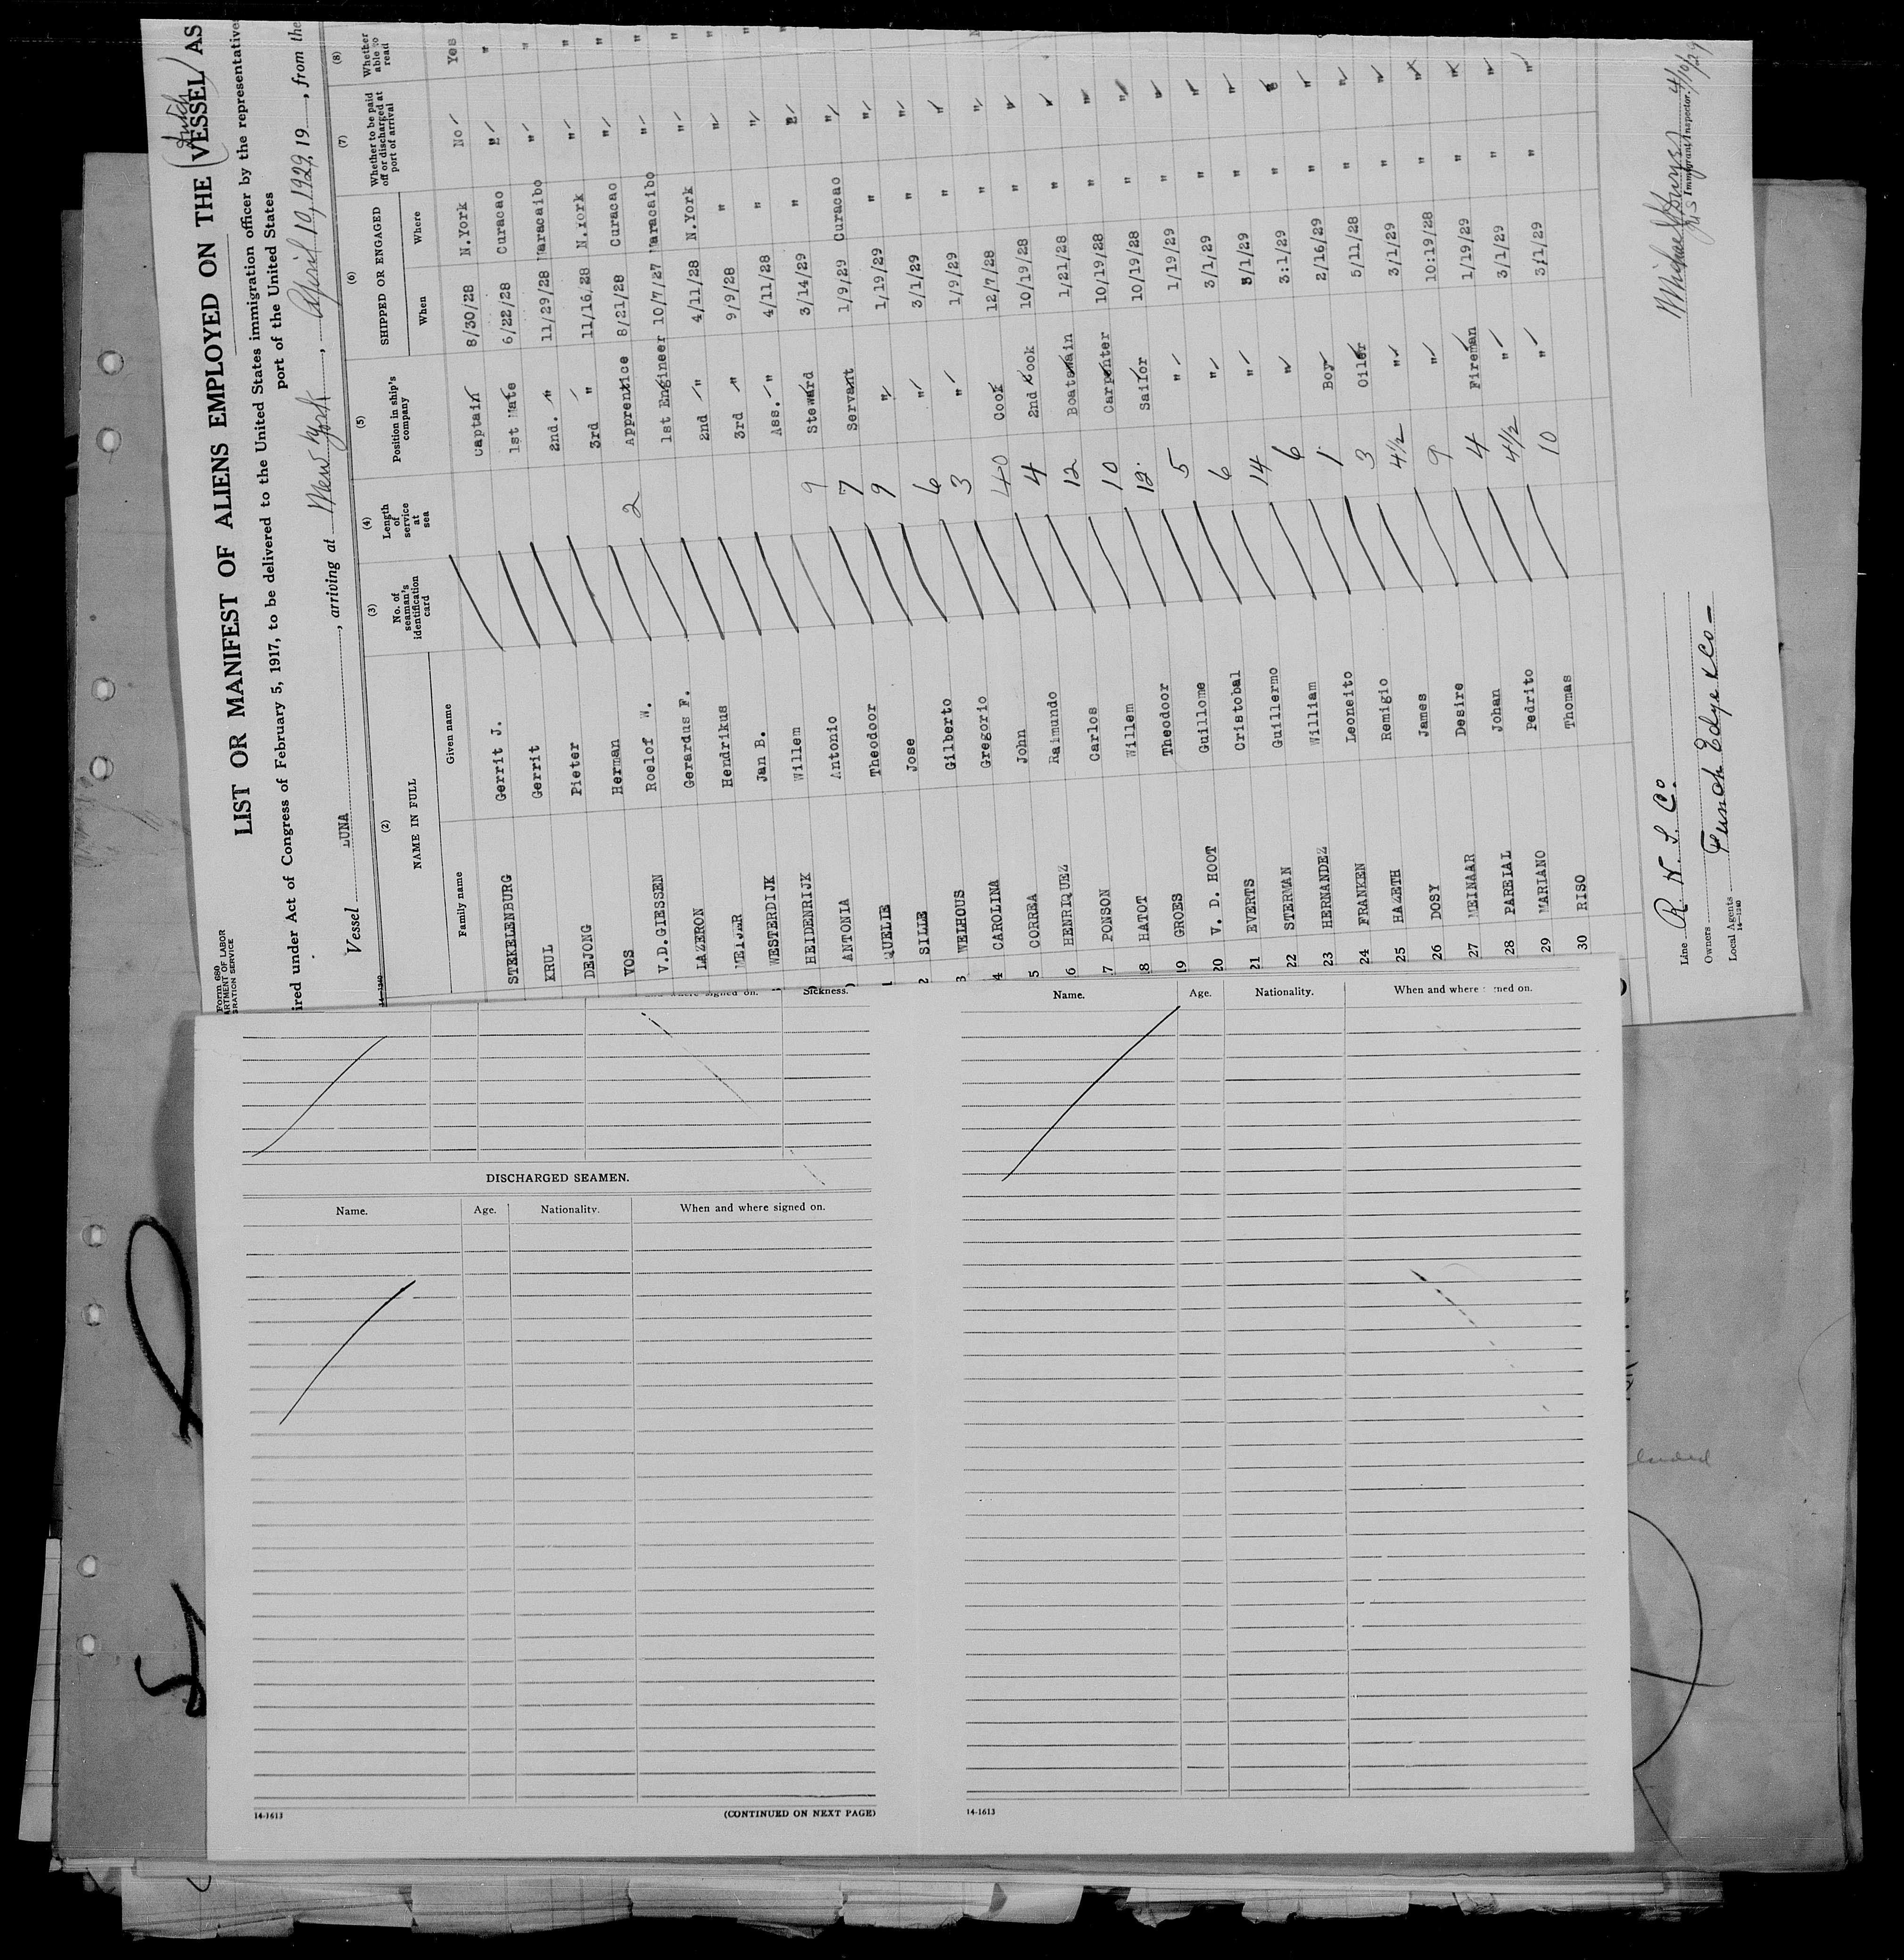 Form 680
ARTMENT OF LABOR
GRATION SERVICE
(Dutch)
LIST OR MANIFEST OF ALIENS EMPLOYED ON THE VESSEL AS
ired under Act of Congress of February 5, 1917, to be delivered to the United States immigration officer by the representative
port of the United States
Vessel LUNA, arriving at New York, April 10, 1929, 19, from the
14—1240
(2) (3) (4) (5) (6) (7) (8)
NAME IN FULL No. of seaman's identification card Length of service at sea Position in ship's company SHIPPED OR ENGAGED Whether to be paid off or discharged at port of arrival Whether able to read
Family name Given name When Where
STEKELENBURG Gerrit J. Captain 8/30/28 N.York No Yes
KRUL Gerrit 1st Mate 6/22/28 Curacao " "
DEJONG Pieter 2nd. " 11/29/28 Maracaibo " "
VOS Herman 3rd " 11/16/28 N.York " "
V.D.GIESSEN Roelof W. 2 Apprentice 8/21/28 Curacao " "
LAZERON Gerardus F. 1st Engineer 10/7/27 Maracaibo " "
MEIJER Hendrikus 2nd " 4/11/28 N.York " "
WESTERDIJK Jan B. 3rd " 9/9/28 " " "
HEIDENRIJK Willem Ass. " 4/11/28 " " "
ANTONIA Antonio 9 Steward 3/14/29 " " "
1 QUELIE Theodoor 7 Servant 1/9/29 Curacao "
2 SILLE Jose 9 " 1/19/29 " "
3 WELHOUS Gilberto 6 " 3/1/29 " "
4 CAROLINA Gregorio 3 " 1/9/29 " "
5 CORREA John 40 Cook 12/7/28 " "
6 HENRIQUEZ Raimundo 4 2nd Cook 10/19/28 " "
7 PONSON Carlos 12 Boatswain 1/21/28 " "
18 HATOT Willem 10 Carpenter 10/19/28 " "
19 GROES Theodoor 12 Sailor 10/19/28 " "
20 V. D. HOOT Guillome 5 " 1/19/29 " "
21 EVERTS Cristobal 6 " 3/1/29 " "
22 STERMAN Guillermo 14 " 3/1/29 " "
23 HERNANDEZ William 6 " 3:1/29 " "
24 FRANKEN Leoneito 1 Boy 2/16/29 " "
25 HAZETH Remigio 3 Oiler 5/11/28 " "
26 DOSY James 4½ " 3/1/29 " "
27 MEINAAR Desire 9 " 10:19/28 " "
28 PAREIAL Johan 4 Fireman 1/19/29 " "
29 MARIANO Pedrito 4½ " 3/1/29 " "
30 RISO Thomas 10 " 3/1/29 " "
Line R. N. S. Co.
Owners
Local Agents Funch Edye & Co—
14—1240
U S Immigrant Inspector. 4/10/29
signed on. Sickness.
DISCHARGED SEAMEN.
Name. Age. Nationality. When and where signed on.
14-1613 (CONTINUED ON NEXT PAGE)
Name. Age. Nationality. When and where signed on.
14-1613